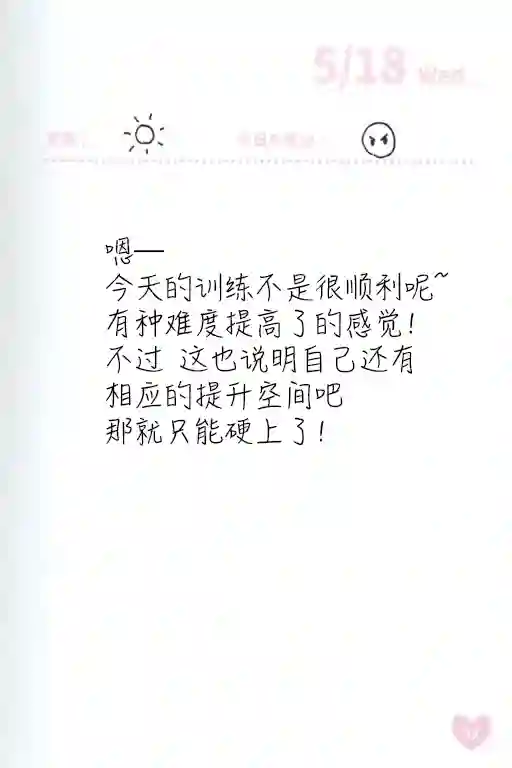 5/18 Wed.
嗯—
今天的训练不是很顺利呢~
有种难度提高了的感觉!
不过 这也说明自己还有
相应的提升空间吧
那就只能硬上了!